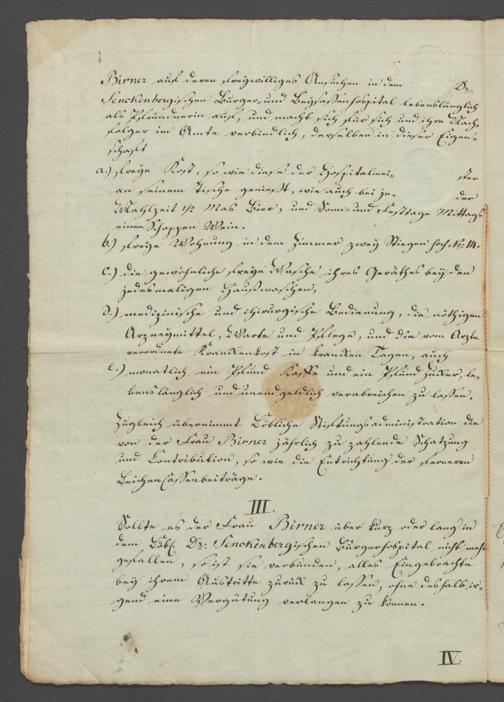 Birner auf deren freywilliges Ansuchen in dem Dr.
Senckenbergischen Bürger- und Beysassenhospital lebenslänglich
als Pfründnerin auf, und macht sich für sich und ihre Nach-
folger im Amte verbindlich, derselben in dieser Eigen-
schaft
a.) freye Kost, so wie diese der Hospitalmeister
an seinem Tische geniesst, wie auch bei jeder
Mahlzeit 1/2 Mas Bier, und Sonn und Festtage Mittags
einen Schoppen Wein.
b.) freye Wohnung in dem Zimmer zwey Stiegen hoch No. 14.
c.) die gewöhnliche freye Wäsche ihres Geräthes bey den
jedesmaligen Hauswaschen,
d.) medizinische und chirurgische Bedienung, die nöthigen
Arzneymittel, Warte und Pflege, und die vom Arzte
verordnete Krankenkost in kranken Tagen, auch
e.) monatlich ein Pfund Kaffe und ein Pfund Zucker, le-
benslänglich und unentgeldlich verabreichen zu lassen.
Zugleich übernimmt Löbliche Stiftungsadministration die
von der Frau Birner jährlich zu zahlende Schatzung
und Contribution, so wie die Entrichtung der ferneren
Leichencassenbeiträge.
III.
Sollte es der Frau Birner über kurz oder lang in
dem Löbl. Dr. Senckenbergischen Bürgerhospital nicht mehr
gefallen, so ist sie verbunden, alles Eingebrachte
bey ihrem Austritte zurück zu lassen, ohne deshalb ir-
gend eine Vergütung verlangen zu können.
IV.